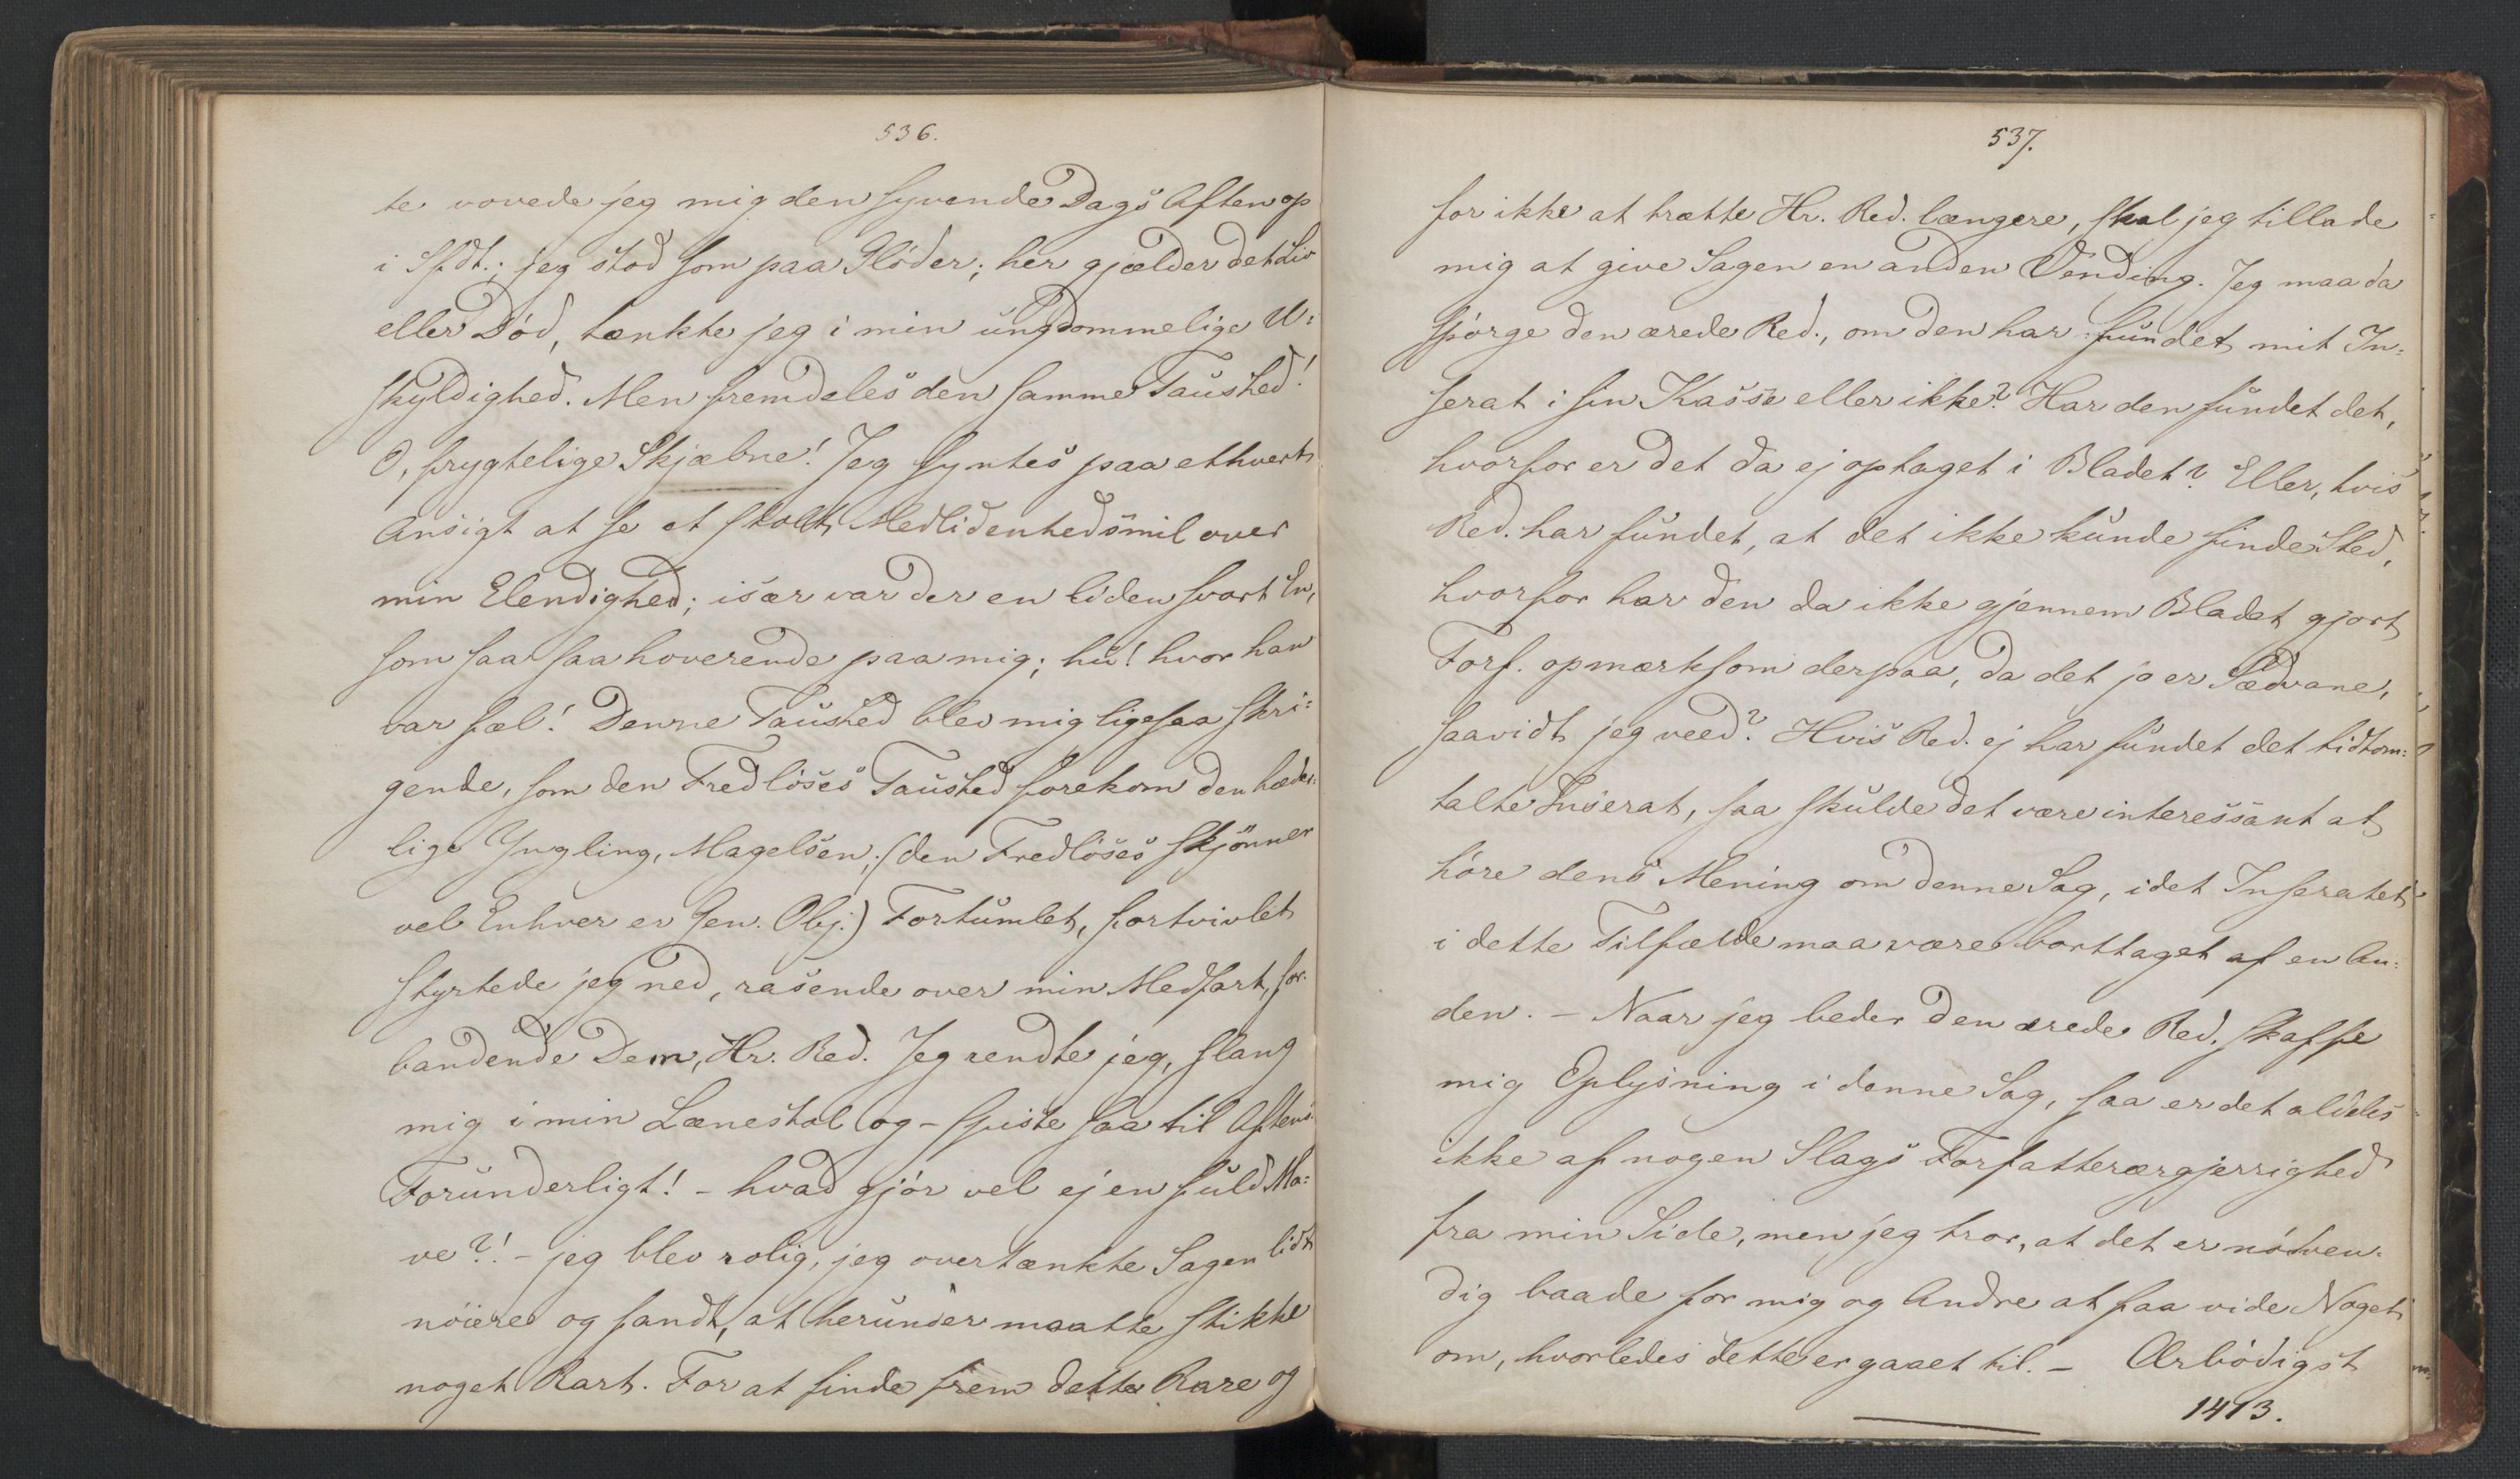 536.
te vovede jeg mig den syvende Dags Aften op
i Sfdt.; jeg stod som paa Glöder; her gjælder det Liv
eller Död, tænkte jeg i min ungdommelige U-
skyldighed. Men fremdeles den samme Taushed!
O, frygtelige Skjæbne! Jeg syntes paa ethvert
Ansigt at se et stolt Medlidenhedsmil over
min Elendighed; især var der en liden svart En,
som saa saa hoverende paa mig; hu! hvor han
var fæl! Denne Taushed blev mig ligesaa skri-
gende, som den Fredlöses Taushed forekom den hæder-
lige Yngling, Magelsen; (den Fredlöses skjönner
vel Enhver er Gen. Obj.) Fortumlet, fortvivlet
styrtede jeg ned, rasende over min Medfart, for-
bandende Dem, Hr. Red. Jeg rendte jeg, slang
mig i min Lænestol og - spiste saa til Aftens.
Forunderligt! - hvad gjör vel ej en fuld Ma-
ve?! - jeg blev rolig, jeg overtænkte Sagen lidt
nöiere og fandt, at herunder maatte stikke
noget Rart. For at finde frem dette Rare og
537.
for ikke at trætte Hr. Red. længere, skal jeg tillade
mig at give Sagen en anden Vending. Jeg maa da
spörge den ærede Red., om den har fundet mit In-
serat i sin Kasse eller ikke? Har den fundet det,
hvorfor er det da ej optaget i Bladet? Eller, hvis
Red. har fundet, at det ikke kunde finde Sted,
hvorfor har den da ikke gjennem Bladet gjort
Forf. opmærksom derpaa, da det jo er Sædvane,
saavidt jeg veed? Hvis Red. ej har fundet det tidtom-
talte Inserat, saa skulde det være interessant at
höre dens Mening om denne Sag, idet Inseratet
i dette Tilfælde maa være borttaget af en An-
den. - Naar jeg beder den ærede Red. skaffe
mig Oplysning i denne Sag, saa er det aldeles
ikke af nogen Slags Forfatterærgjerrighed
fra min Side, men jeg tror, at det er nödven-
dig baade for mig og Andre at faa vide Noget
om, hvorledes dette er gaaet til. - Ærbödigst
1413.